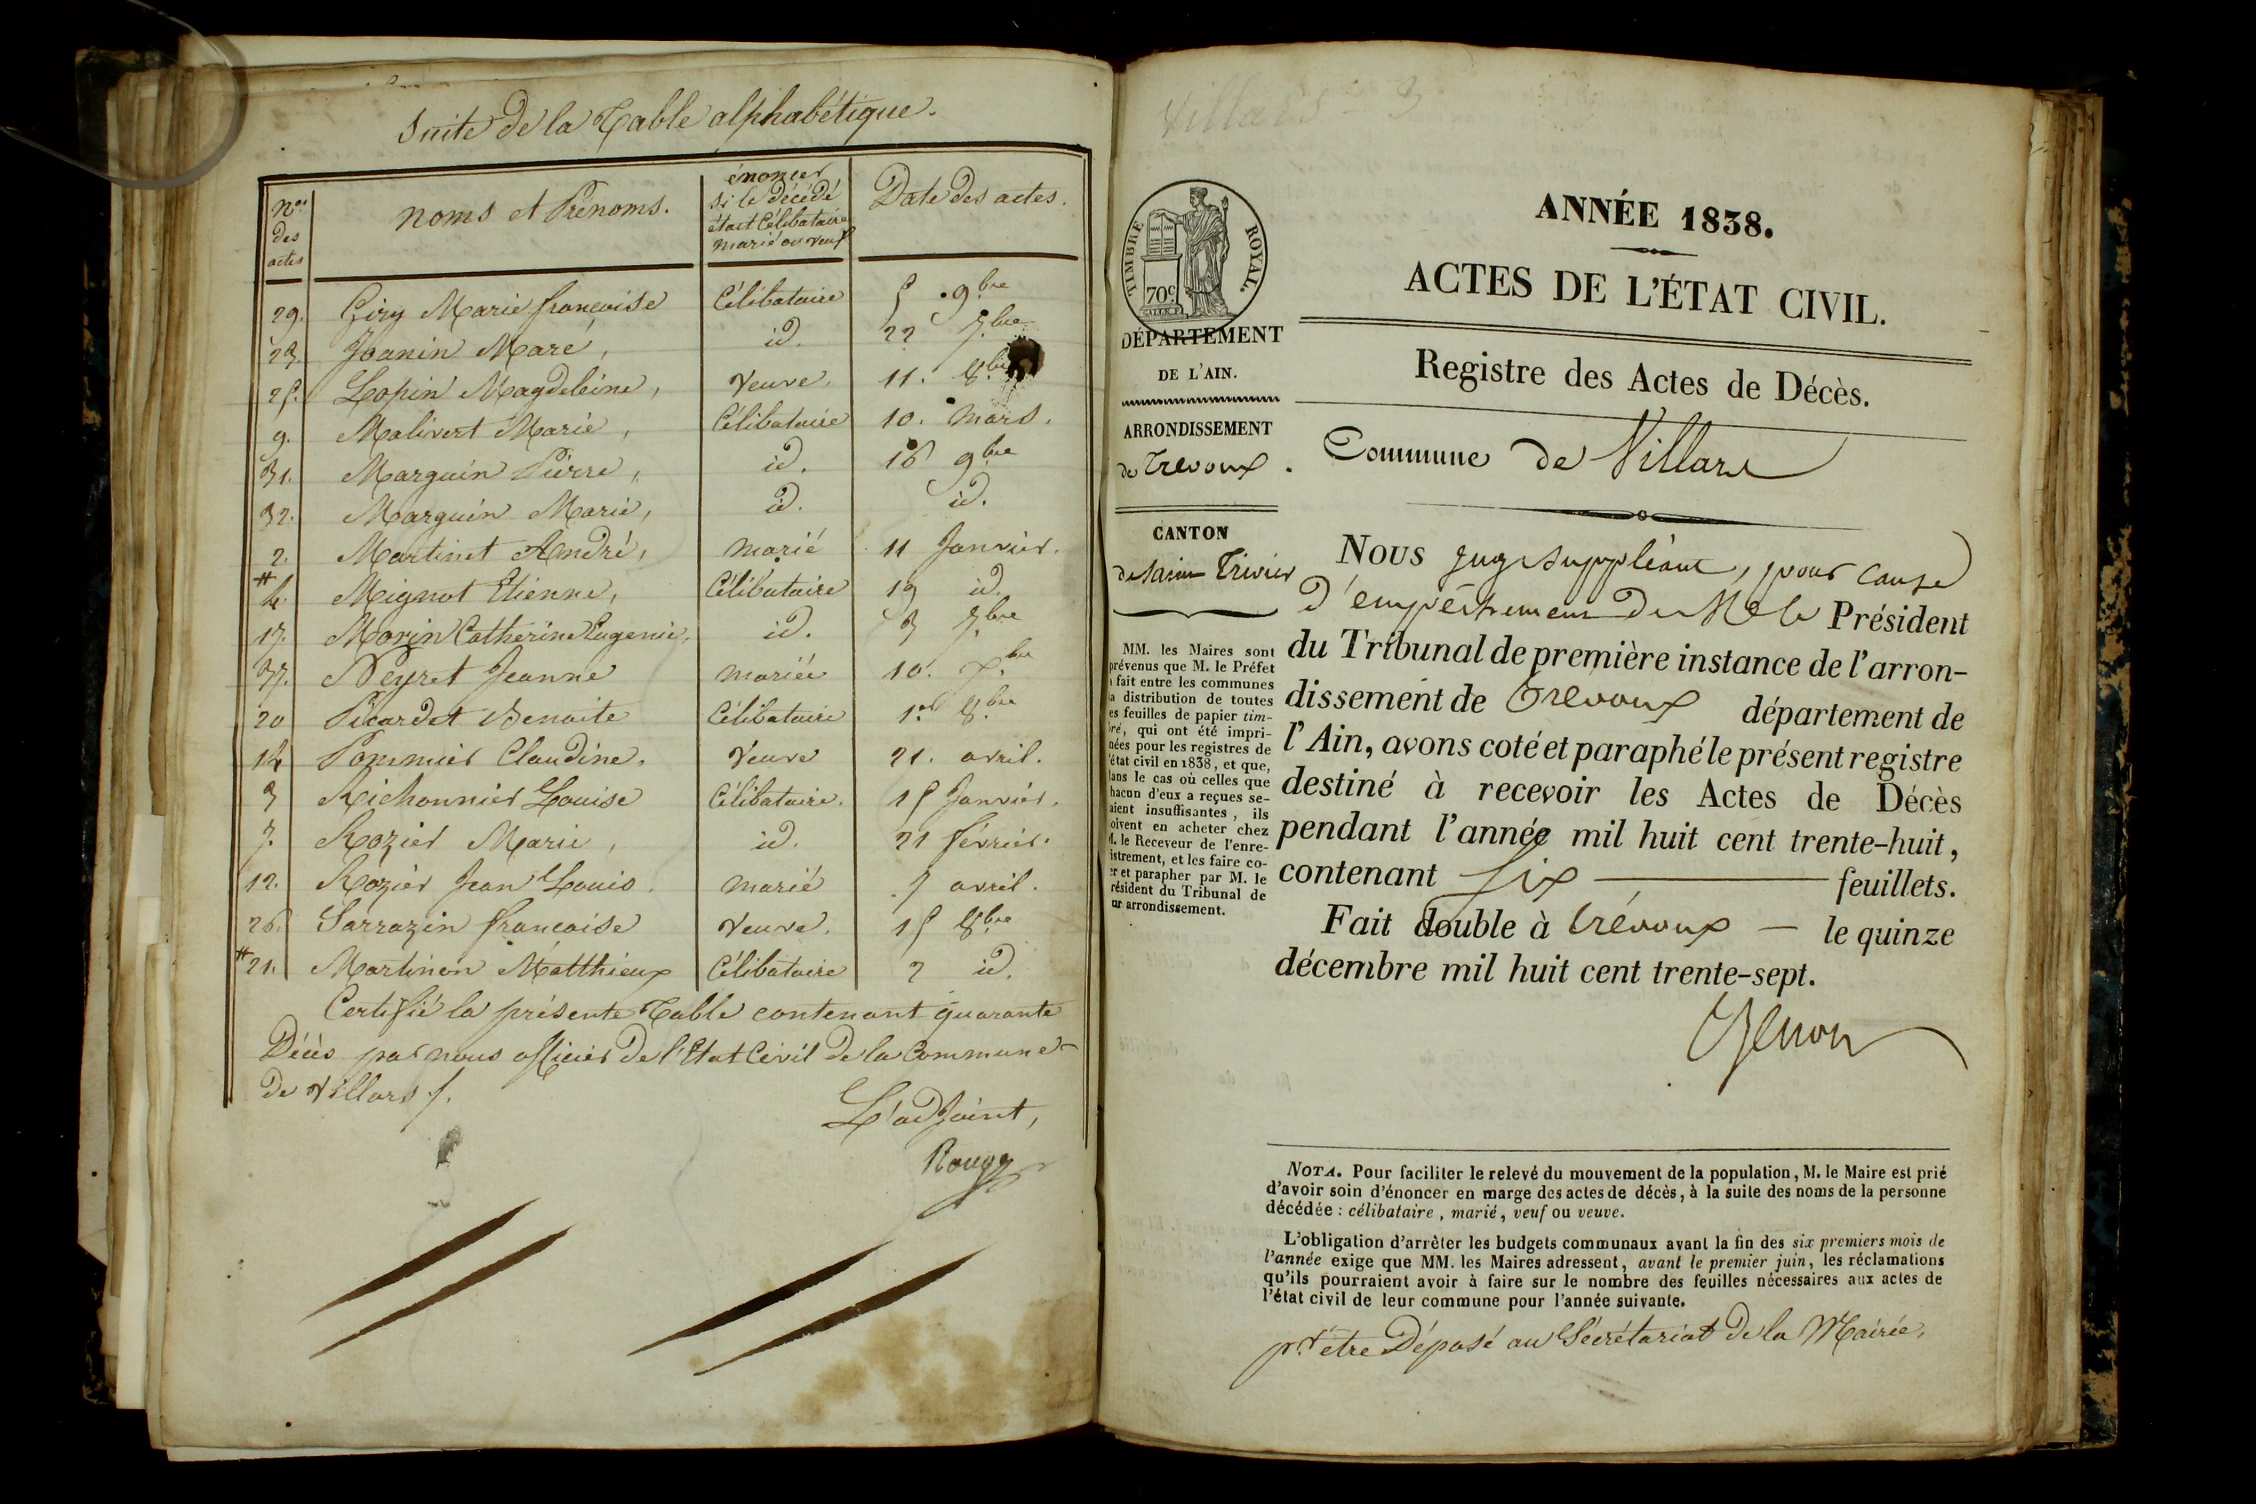 Suite de la Table alphabétique.
Nos des actes
noms et Prénoms.
énoncer si le décédé était Célibataire marié ou veuf
Date des actes.
29. Giry Marie françoise Célibataire 5 9bre
23. Joanin Marc, id. 22 7bre
25. Lopin Magdeleine, Veuve. 11. 8bre
9. Malivert Marie, Célibataire 10. Mars.
31. Marguin Pierre, id. 16 9bre
32. Marguin Marie, id. id.
2. Martinet André, marié 11 Janvier.
# 4. Mignot Etienne, Célibataire 19 id.
17. Morin Catherine Eugenie, id. 3 7bre
37. Neyret Jeanne mariée 10.
20 Picardet Benoite Célibataire 1er 8bre
14 Pommier Claudine. Veuve 21. avril.
3 Richonnier Louise Célibataire. 15 Janvier.
7. Rozier Marie, id. 21 février.
12. Rozier Jean Louis. marié 7 avril.
26. Sarrazin françoise Veuve. 15 8bre
# 21. Martinon Matthieux Célibataire 2 id.
Certifié la présente Table contenant quarante
Décès par nous officier de l'Etat Civil de la Commune
de Villars ./.
L'adjoint,
Rougy
Villars
TIMBRE ROYAL.
70c
DÉPARTEMENT
DE L'AIN.
ARRONDISSEMENT
de Trevoux.
CANTON
de Saint Trivier
MM. les Maires sont
prévenus que M. le Préfet
a fait entre les communes
la distribution de toutes
les feuilles de papier tim-
bré, qui ont été impri-
mées pour les registres de
l'état civil en 1838, et que,
dans le cas où celles que
chacun d'eux a reçues se-
raient insuffisantes, ils
doivent en acheter chez
M. le Receveur de l'enre-
gistrement, et les faire co-
ter et parapher par M. le
Président du Tribunal de
leur arrondissement.
ANNÉE 1838.
ACTES DE L'ÉTAT CIVIL.
Registre des Actes de Décès.
Commune de Villars
Nous juge suppléant, pour cause
d'empêchement de M. le Président
du Tribunal de première instance de l'arron-
dissement de Trevoux département de
l'Ain, avons coté et paraphé le présent registre
destiné à recevoir les Actes de Décès
pendant l'année mil huit cent trente-huit,
contenant Six feuillets.
Fait double à Trévoux — le quinze
décembre mil huit cent trente-sept.
NOTA. Pour faciliter le relevé du mouvement de la population, M. le Maire est prié
d'avoir soin d'énoncer en marge des actes de décès, à la suite des noms de la personne
décédée : célibataire, marié, veuf ou veuve.
L'obligation d'arrêter les budgets communaux avant la fin des six premiers mois de
l'année exige que MM. les Maires adressent, avant le premier juin, les réclamations
qu'ils pourraient avoir à faire sur le nombre des feuilles nécessaires aux actes de
l'état civil de leur commune pour l'année suivante.
pr être Déposé au Sécrétariat de la Mairée.